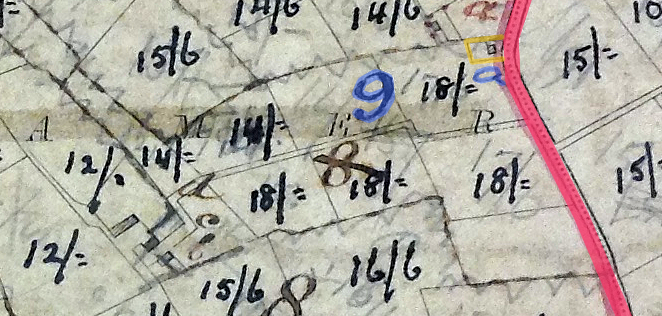 14/6 14/6 a 10
15/6 15/=
9 18/= a
A M 14/= E R
12/= 14/= 8 15/=
d 18/= 18/= 18/=
c
12/= b 16/6
15/6 8